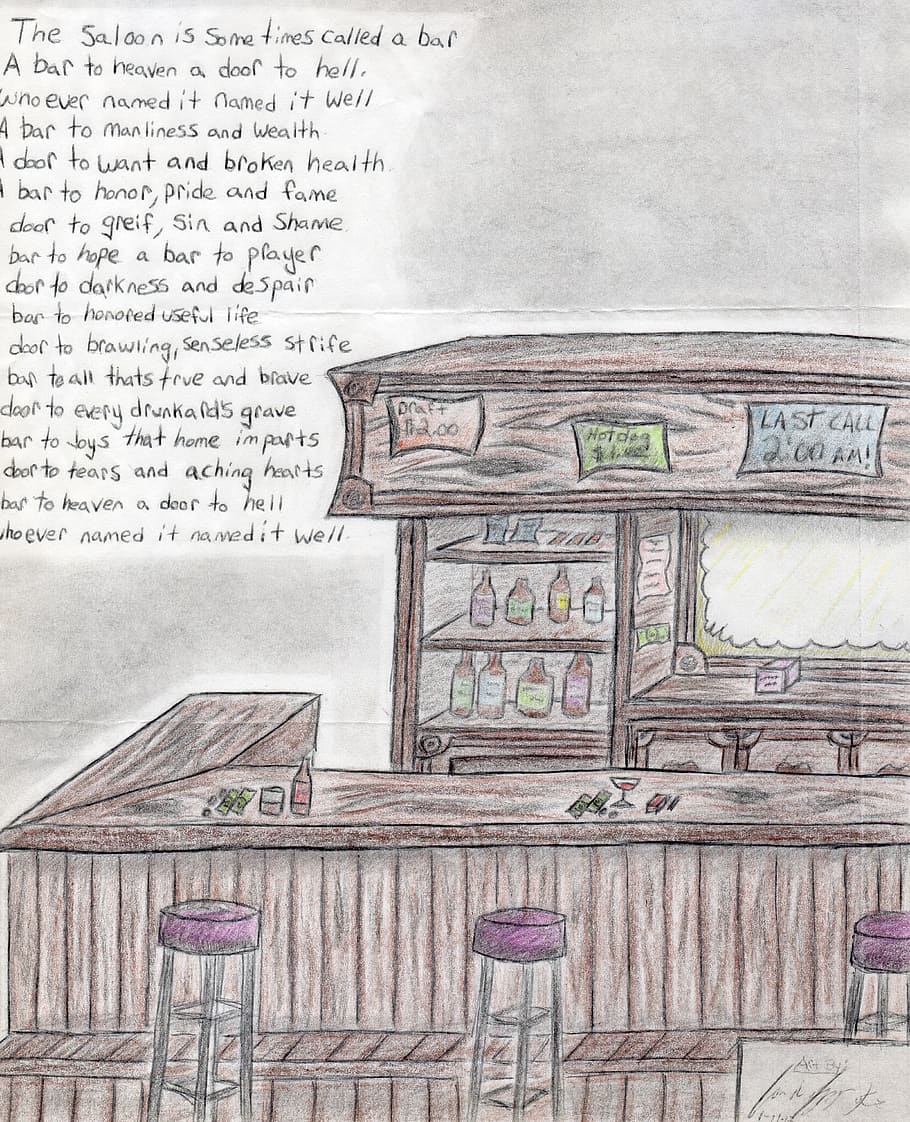 The Saloon is Some times called a bar
A bar to heaven a door to hell.
whoever named it named it Well
A bar to Manliness and Wealth.
door to want and broken health.
bar to honor, pride and fame
door to greif, Sin and Shame.
bar to hope a bar to prayer
door to darkness and despair
bar to honored useful life
door to brawling, senseless strife
bar to all thats true and brave
door to every drunkard's grave
bar to Joys that home imparts
door to tears and aching hearts
bar to heaven a door to hell
hoever named it named it Well.
Draft
$2.00
Hot dog
LAST CALL
2:00 AM!
Art By: